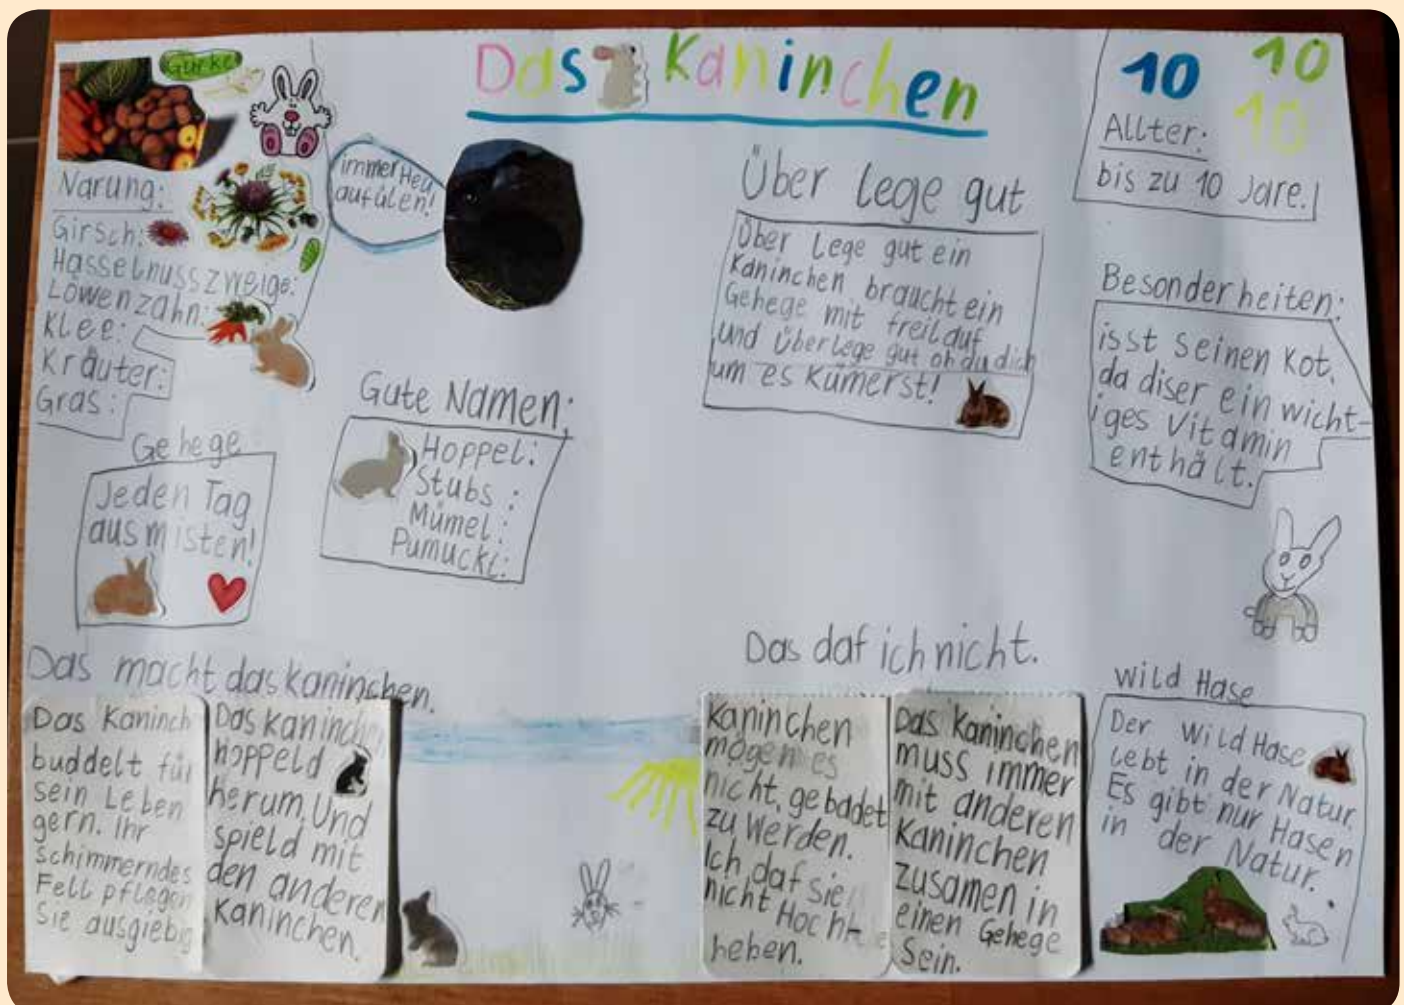 Das Kaninchen
Gurke
Narung:
Girsch:
Hasselnusszweige:
Löwenzahn:
Klee:
Kräuter:
Gras:
immer Heu
aufülen!
Gehege
Jeden Tag
ausmisten!
Gute Namen:
Hoppel:
Stubs:
Mümel:
Pumuckl:
Über lege gut
Über lege gut ein
Kaninchen braucht ein
Gehege mit freilauf
und Überlege gut ob du dich
um es Kümerst!
10 10
10
Allter:
bis zu 10 Jare.
Besonderheiten:
isst seinen Kot,
da diser ein wicht-
iges Vitamin
enthält.
Das macht das kaninchen.
Das Kaninch
buddelt für
sein Leben
gern. Ihr
schimmerndes
Fell pflegen
Sie ausgiebig
Das kaninchen
hoppeld
herum. Und
spield mit
den anderen
Kaninchen.
Das daf ich nicht.
Kaninchen
mögen es
nicht, gebadet
zu werden.
Ich daf sie
nicht Hoch
heben.
Das Kaninchen
muss immer
mit anderen
Kaninchen
zusamen in
einen Gehege
Sein.
wild Hase
Der wild Hase
lebt in der Natur.
Es gibt nur Hasen
in der Natur.